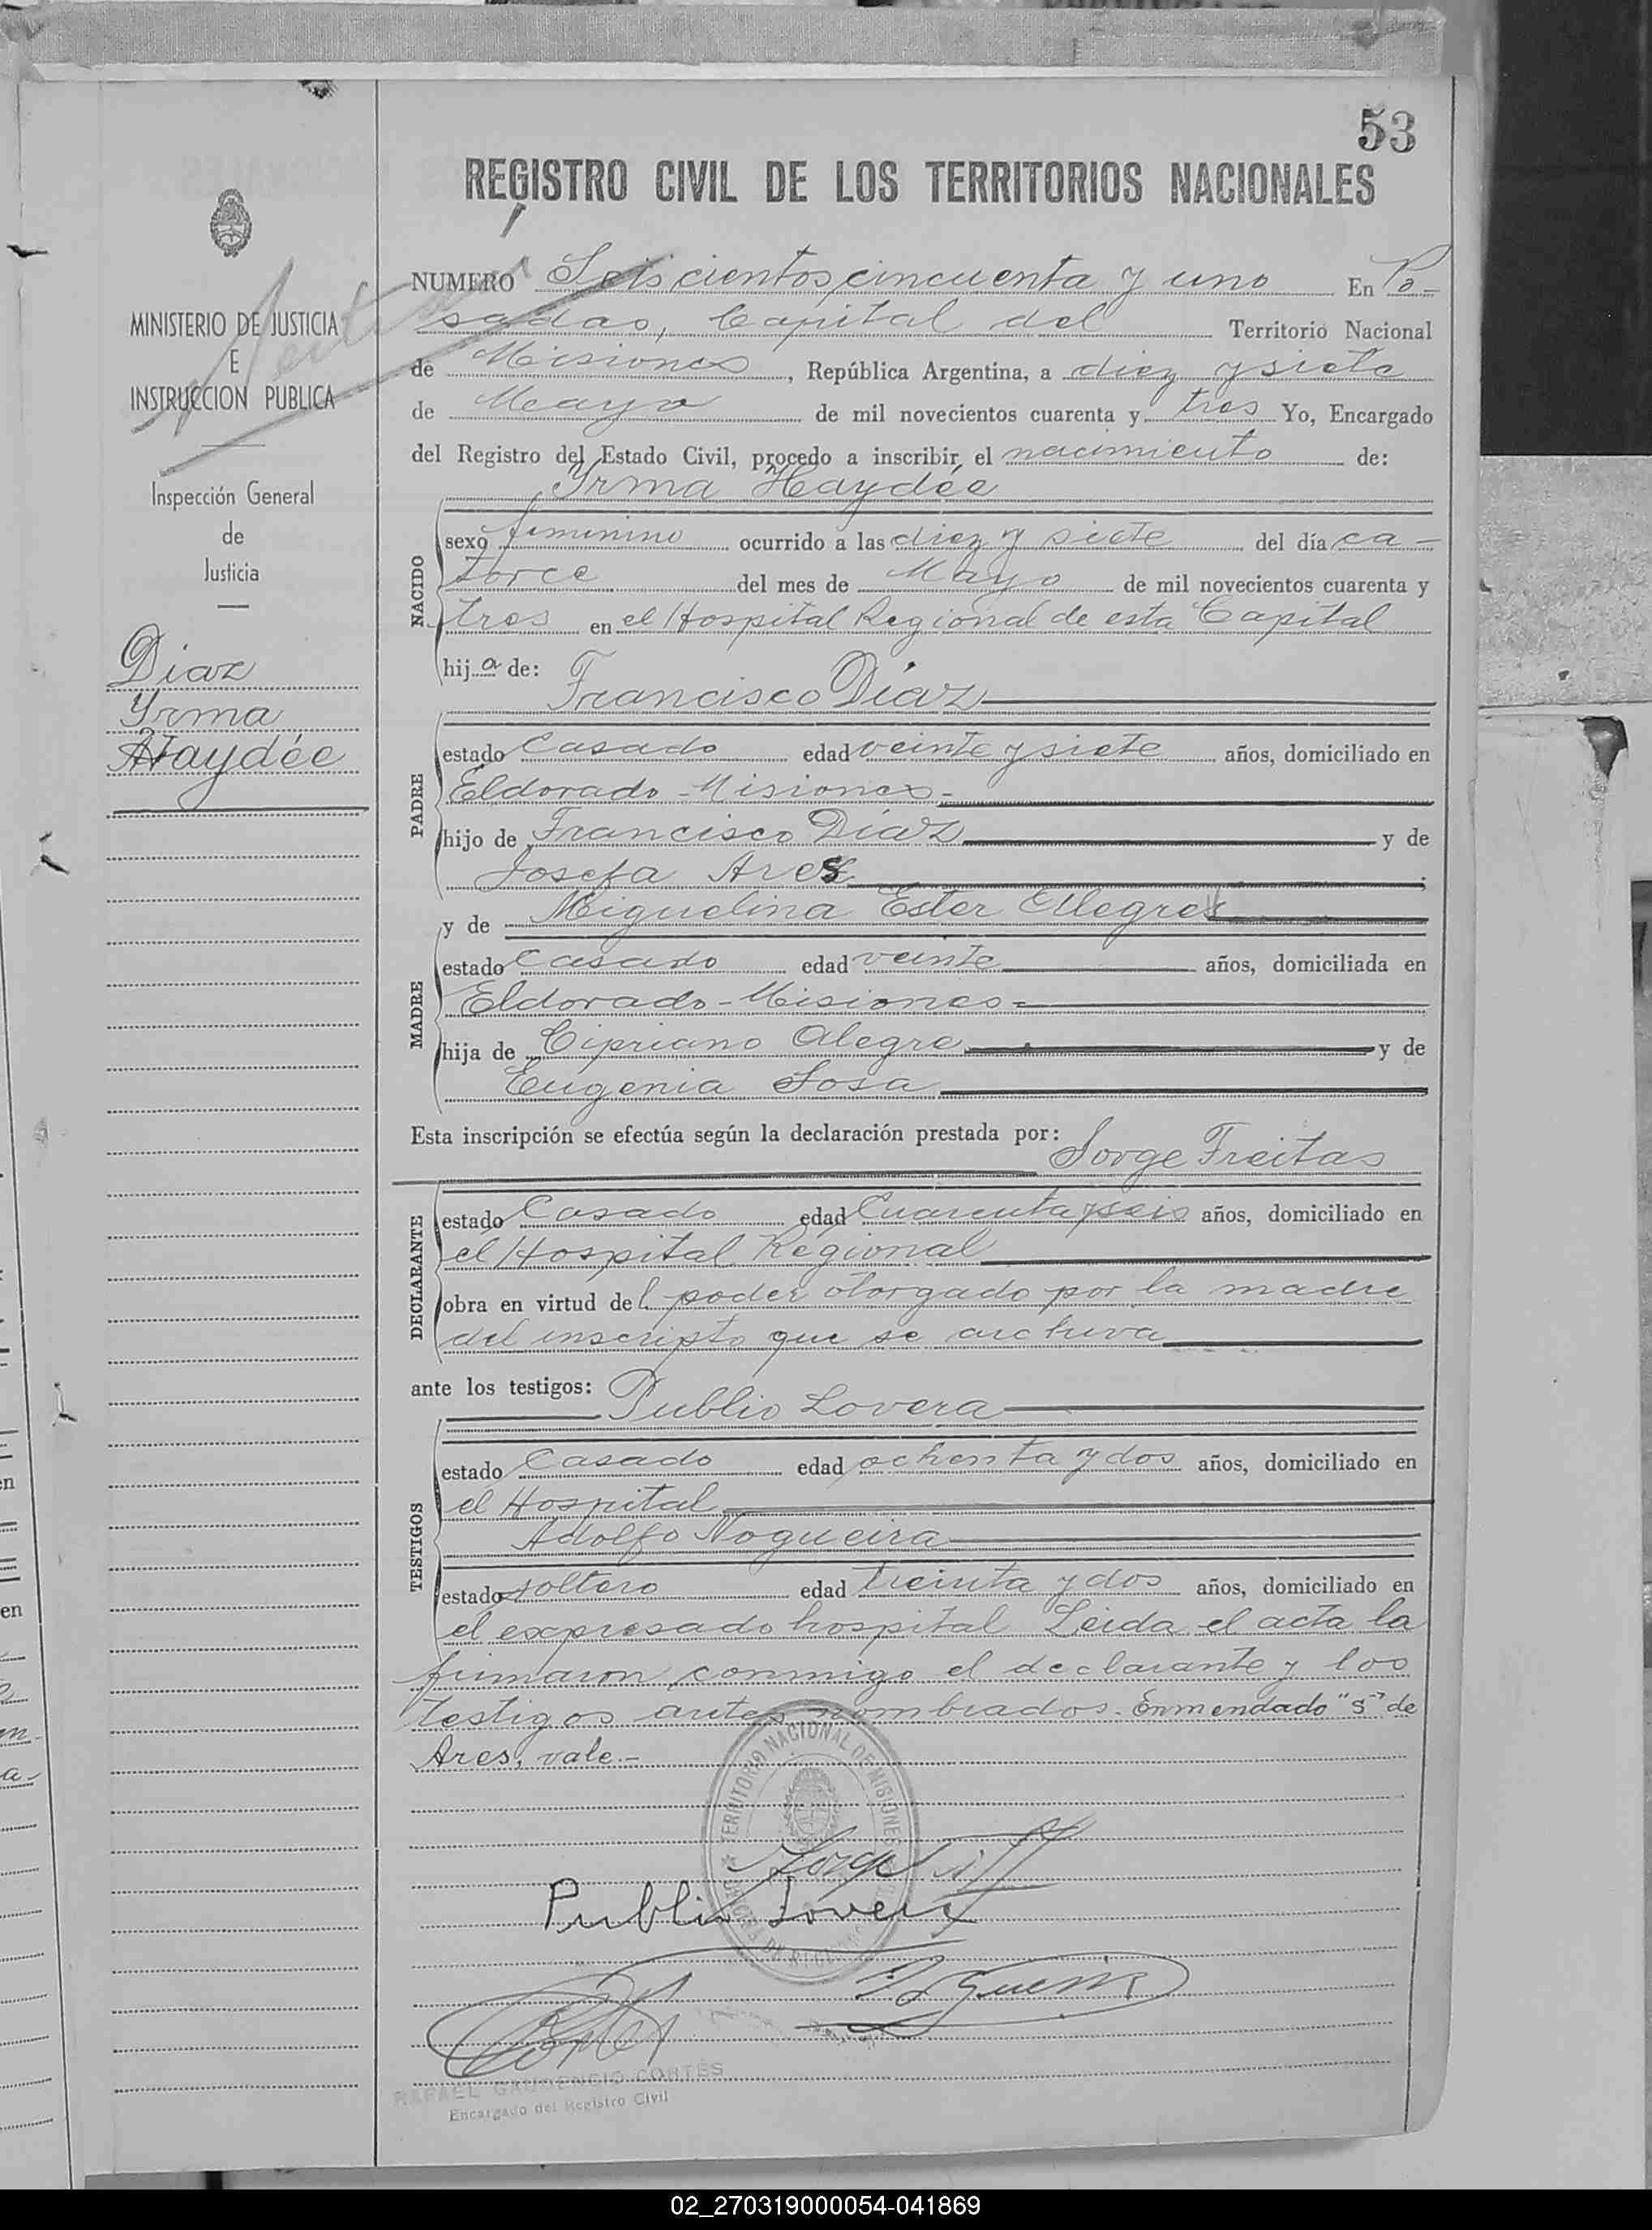 53
REGISTRO CIVIL DE LOS TERRITORIOS NACIONALES
MINISTERIO DE JUSTICIA
E
INSTRUCCION PUBLICA
Inspección General
de
Justicia
Diaz
Yrma
Haydée
NUMERO Seiscientos cincuenta y uno En Po-
sadas, Capital del Territorio Nacional
de Misiones, República Argentina, a diez y siete
de Mayo de mil novecientos cuarenta y tres Yo, Encargado
del Registro del Estado Civil, procedo a inscribir el nacimiento de:
Yrma Haydée
NACIDO
sexo femenino ocurrido a las diez y siete del día ca-
torce del mes de Mayo de mil novecientos cuarenta y
tres en el Hospital Regional de esta Capital
hija de:
Francisco Díaz
PADRE
estado Casado edad veinte y siete años, domiciliado en
Eldorado - Misiones -
hijo de Francisco Díaz y de
Josefa Ares
y de Miguelina Ester Alegre
MADRE
estado Casado edad veinte años, domiciliada en
Eldorado - Misiones =
hija de Cipriano Alegre y de
Eugenia Sosa
Esta inscripción se efectúa según la declaración prestada por:
Jorge Freitas
DECLARANTE
estado Casado edad Cuarenta y seis años, domiciliado en
el Hospital Regional
obra en virtud del poder otorgado por la madre
del inscripto que se archiva
ante los testigos:
Publio Lovera
TESTIGOS
estado Casado edad ochenta y dos años, domiciliado en
el Hospital
Adolfo Nogueira
estado soltero edad treinta y dos años, domiciliado en
el expresado hospital Leida el acta la
firmaron conmigo el declarante y los
testigos antes nombrados. Enmendado "s" de
Ares, vale.-
TERRITORIO NACIONAL DE MISIONES
Publio Lovera
RAFAEL GAUDENCIO CORTÉS
Encargado del Registro Civil
02_270319000054-041869